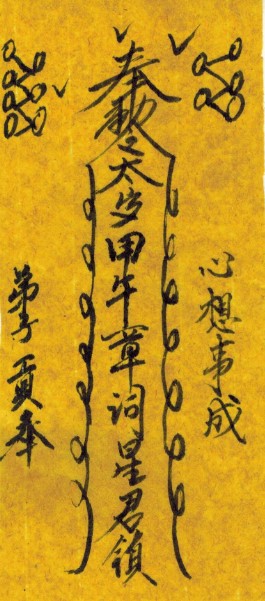 心想事成
奉勅令太歲甲午章詞星君鎮
弟子 貢奉